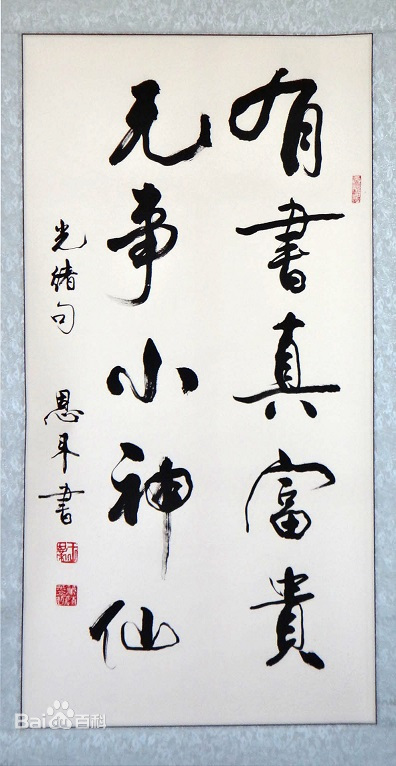 有書真富貴
无事小神仙
光緒句
恩年書
Bai百科